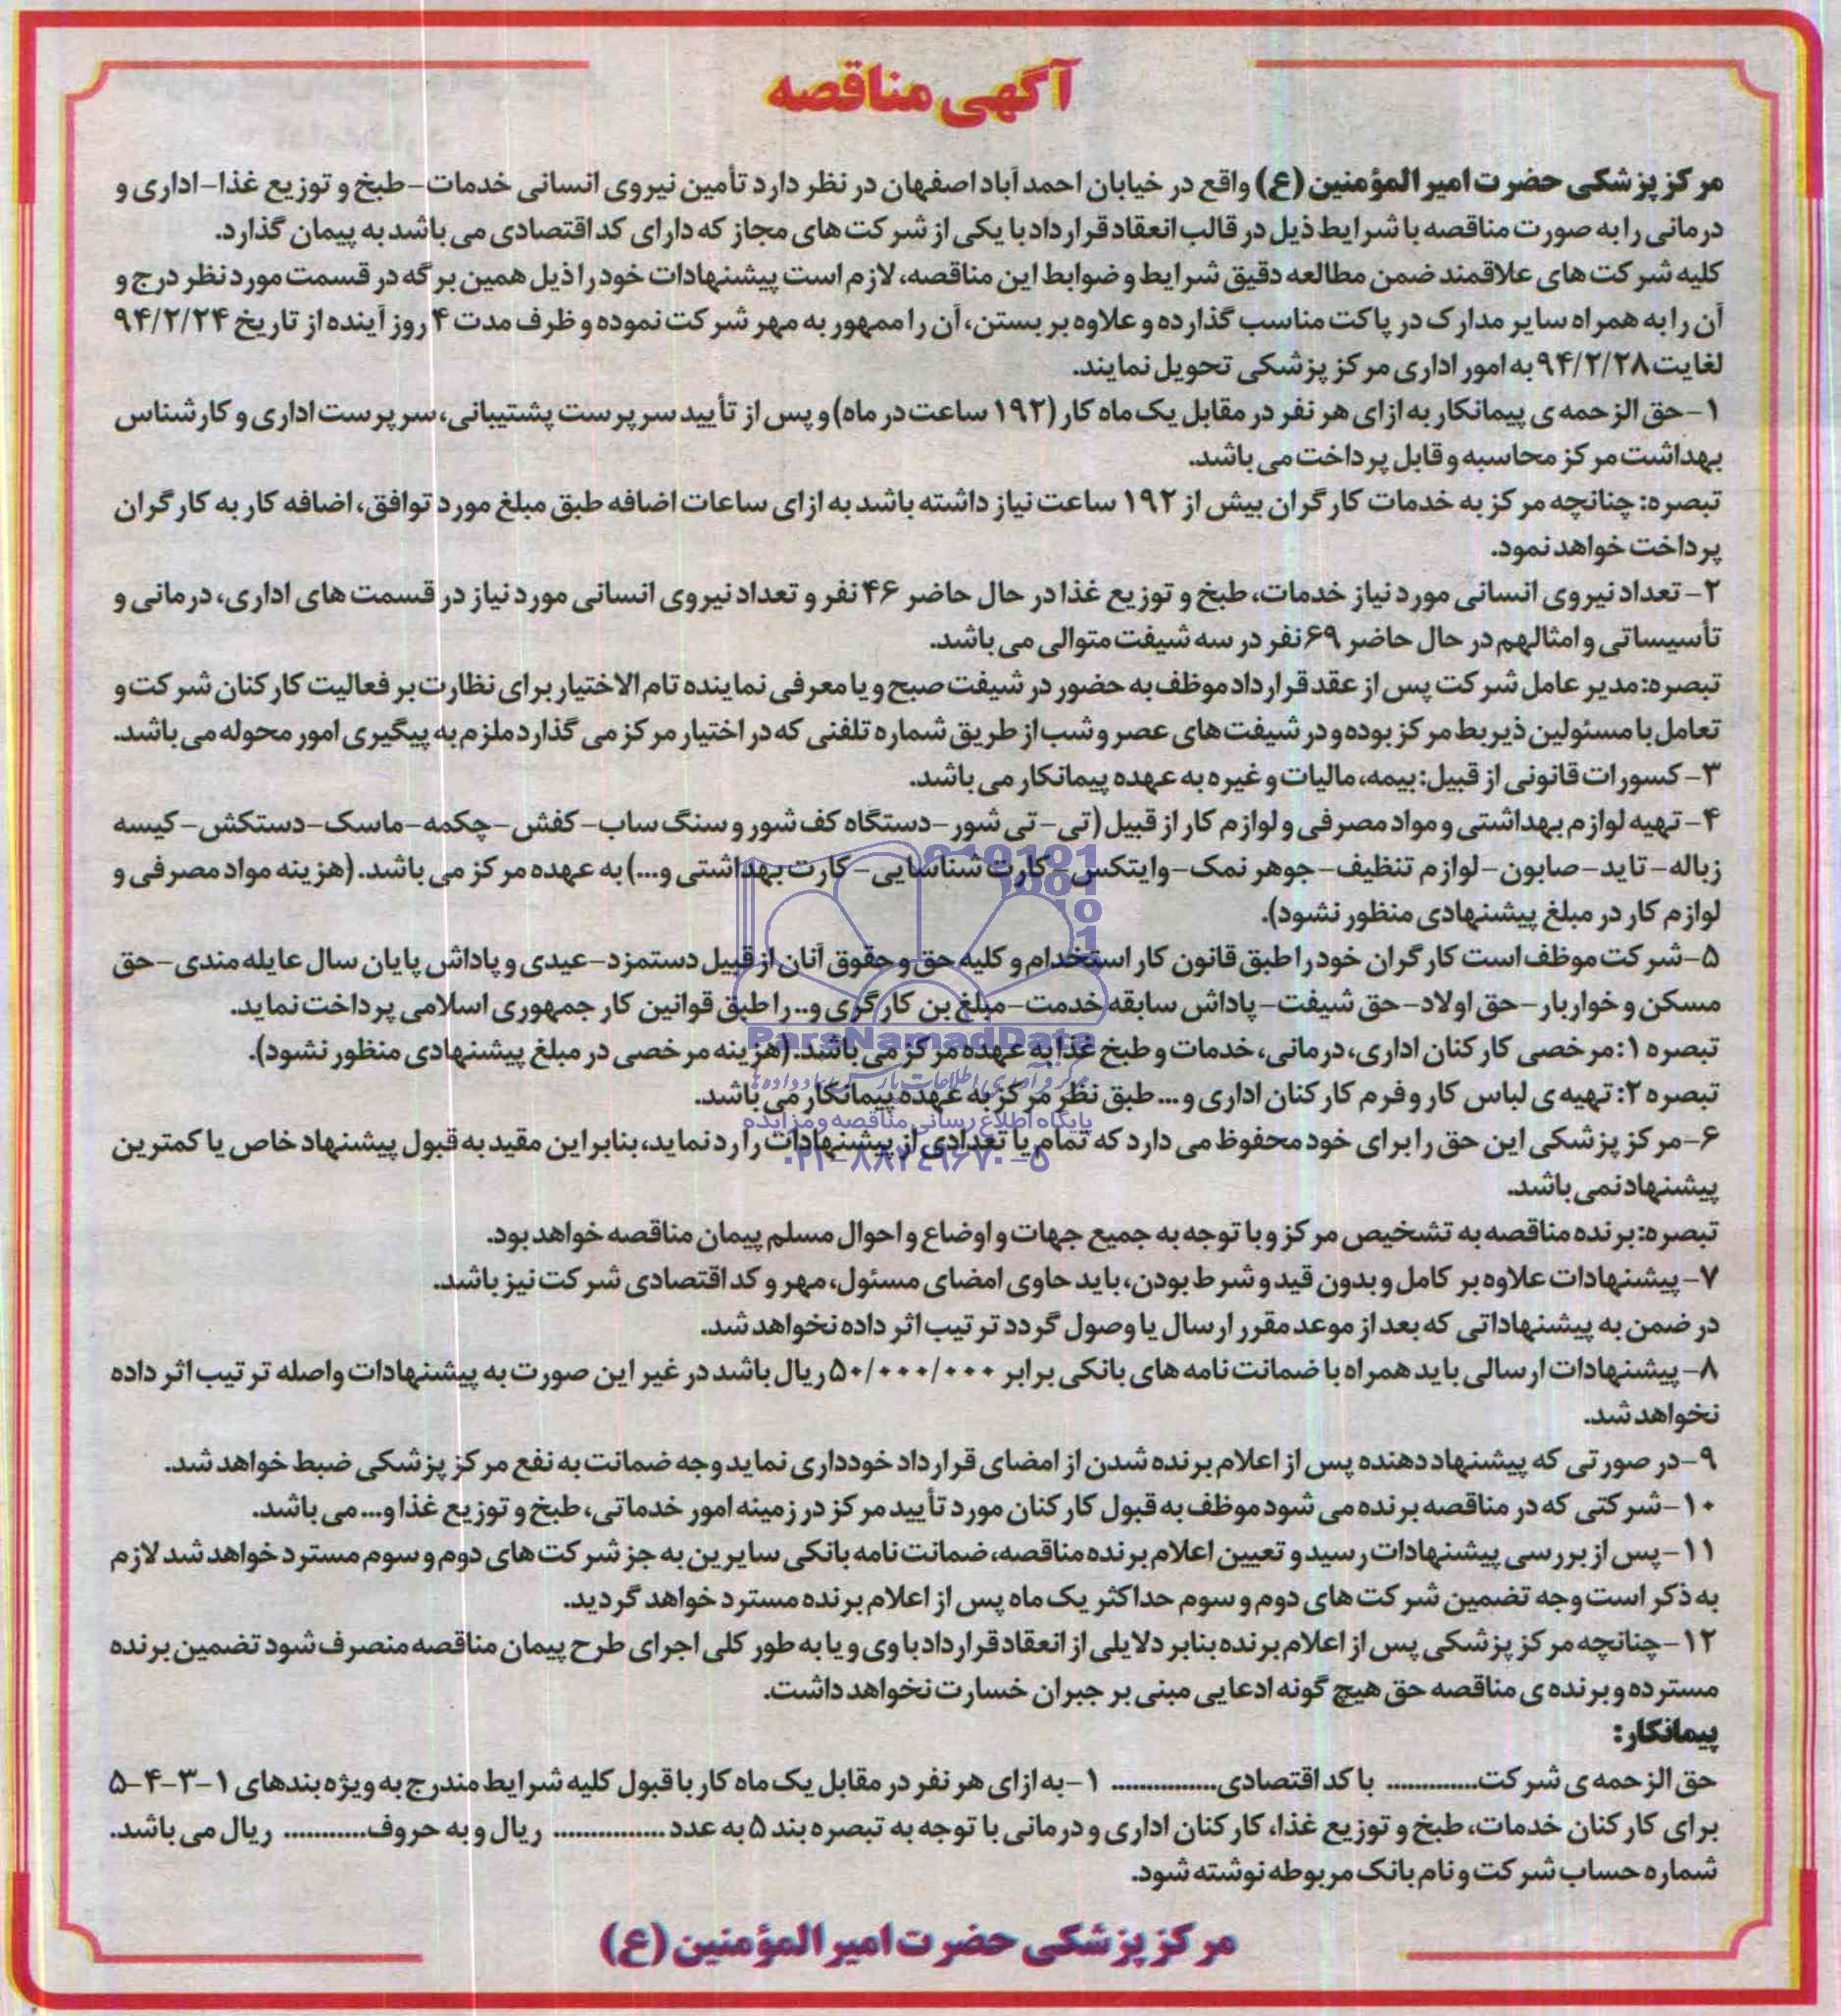 آگهی مناقصه
مرکز پزشکی حضرت امیرالمؤمنین (ع) واقع در خیابان احمدآباد اصفهان در نظر دارد تأمین نیروی انسانی خدمات-طبخ و توزیع غذا-اداری و
درمانی را به صورت مناقصه با شرایط ذیل در قالب انعقاد قرارداد با یکی از شرکت های مجاز که دارای کد اقتصادی می باشد به پیمان گذارد.
کلیه شرکت های علاقمند ضمن مطالعه دقیق شرایط و ضوابط این مناقصه، لازم است پیشنهادات خود را ذیل همین برگه در قسمت مورد نظر درج و
آن را به همراه سایر مدارک در پاکت مناسب گذارده و علاوه بر بستن، آن را ممهور به مهر شرکت نموده و ظرف مدت ۴ روز آینده از تاریخ ۹۴/۲/۲۴
لغایت ۹۴/۲/۲۸ به امور اداری مرکز پزشکی تحویل نمایند.
۱-حق الزحمه ی پیمانکار به ازای هر نفر در مقابل یک ماه کار (۱۹۲ ساعت در ماه) و پس از تأیید سرپرست پشتیبانی، سرپرست اداری و کارشناس
بهداشت مرکز محاسبه و قابل پرداخت می باشد.
تبصره: چنانچه مرکز به خدمات کارگران بیش از ۱۹۲ ساعت نیاز داشته باشد به ازای ساعات اضافه طبق مبلغ مورد توافق، اضافه کار به کارگران
پرداخت خواهد نمود.
۲- تعداد نیروی انسانی مورد نیاز خدمات، طبخ و توزیع غذا در حال حاضر ۴۶ نفر و تعداد نیروی انسانی مورد نیاز در قسمت های اداری، درمانی و
تأسیساتی و امثالهم در حال حاضر ۶۹ نفر در سه شیفت متوالی می باشد.
تبصره: مدیر عامل شرکت پس از عقد قرارداد موظف به حضور در شیفت صبح و یا معرفی نماینده تام الاختیار برای نظارت بر فعالیت کارکنان شرکت و
تعامل با مسئولین ذیربط مرکز بوده و در شیفت های عصر و شب از طریق شماره تلفنی که در اختیار مرکز می گذارد ملزم به پیگیری امور محوله می باشد.
۳- کسورات قانونی از قبیل: بیمه، مالیات و غیره به عهده پیمانکار می باشد.
۴- تهیه لوازم بهداشتی و مواد مصرفی و لوازم کار از قبیل (تی- تی شور-دستگاه کف شور و سنگ ساب- کفش-چکمه-ماسک-دستکش-کیسه
زباله-تاید-صابون-لوازم تنظیف-جوهر نمک-وایتکس-کارت شناسایی-کارت بهداشتی و...) به عهده مرکز می باشد. (هزینه مواد مصرفی و
لوازم کار در مبلغ پیشنهادی منظور نشود).
۵-شرکت موظف است کارگران خود را طبق قانون کار استخدام و کلیه حق و حقوق آنان از قبیل دستمزد-عیدی و پاداش پایان سال عایله مندی-حق
مسکن و خواربار-حق اولاد-حق شیفت-پاداش سابقه خدمت-مبلغ بن کارگری و.. را طبق قوانین کار جمهوری اسلامی پرداخت نماید.
ParsNamadData
تبصره ۱: مرخصی کارکنان اداری، درمانی، خدمات و طبخ غذا به عهده مرکز می باشد. (هزینه مرخصی در مبلغ پیشنهادی منظور نشود).
تبصره ۲: تهیه ی لباس کار و فرم کارکنان اداری و... طبق نظر مرکز به عهده پیمانکار می باشد.
پایگاه اطلاع رسانی مناقصه و مزایده
۶-مرکز پزشکی این حق را برای خود محفوظ می دارد که تمام یا تعدادی از پیشنهادات را رد نماید، بنابراین مقید به قبول پیشنهاد خاص یا کمترین
۰۲۱-۸۸۳۴۹۶۷۰-۵
پیشنهاد نمی باشد.
تبصره: برنده مناقصه به تشخیص مرکز و با توجه به جمیع جهات و اوضاع و احوال مسلم پیمان مناقصه خواهد بود.
۷- پیشنهادات علاوه بر کامل و بدون قید و شرط بودن، باید حاوی امضای مسئول، مهر و کد اقتصادی شرکت نیز باشد.
در ضمن به پیشنهاداتی که بعد از موعد مقرر ارسال یا وصول گردد ترتیب اثر داده نخواهد شد.
۸- پیشنهادات ارسالی باید همراه با ضمانت نامه های بانکی برابر ۵۰/۰۰۰/۰۰۰ ریال باشد در غیر این صورت به پیشنهادات واصله ترتیب اثر داده
نخواهد شد.
۹-در صورتی که پیشنهاد دهنده پس از اعلام برنده شدن از امضای قرارداد خودداری نماید وجه ضمانت به نفع مرکز پزشکی ضبط خواهد شد.
۱۰-شرکتی که در مناقصه برنده می شود موظف به قبول کارکنان مورد تأیید مرکز در زمینه امور خدماتی، طبخ و توزیع غذا و... می باشد.
۱۱-پس از بررسی پیشنهادات رسید و تعیین اعلام برنده مناقصه، ضمانت نامه بانکی سایرین به جز شرکت های دوم و سوم مسترد خواهد شد لازم
به ذکر است وجه تضمین شرکت های دوم و سوم حداکثر یک ماه پس از اعلام برنده مسترد خواهد گردید.
۱۲-چنانچه مرکز پزشکی پس از اعلام برنده بنابر دلایلی از انعقاد قرارداد با وی و یا به طور کلی اجرای طرح پیمان مناقصه منصرف شود تضمین برنده
مسترده و برنده ی مناقصه حق هیچ گونه ادعایی مبنی بر جبران خسارت نخواهد داشت.
پیمانکار:
حق الزحمه ی شرکت............. با کد اقتصادی............... ۱-به ازای هر نفر در مقابل یک ماه کار با قبول کلیه شرایط مندرج به ویژه بندهای ۱-۳-۴-۵
برای کارکنان خدمات، طبخ و توزیع غذا، کارکنان اداری و درمانی با توجه به تبصره بند ۵ به عدد................ ریال و به حروف............ ریال می باشد.
شماره حساب شرکت و نام بانک مربوطه نوشته شود.
مرکز پزشکی حضرت امیرالمؤمنین (ع)